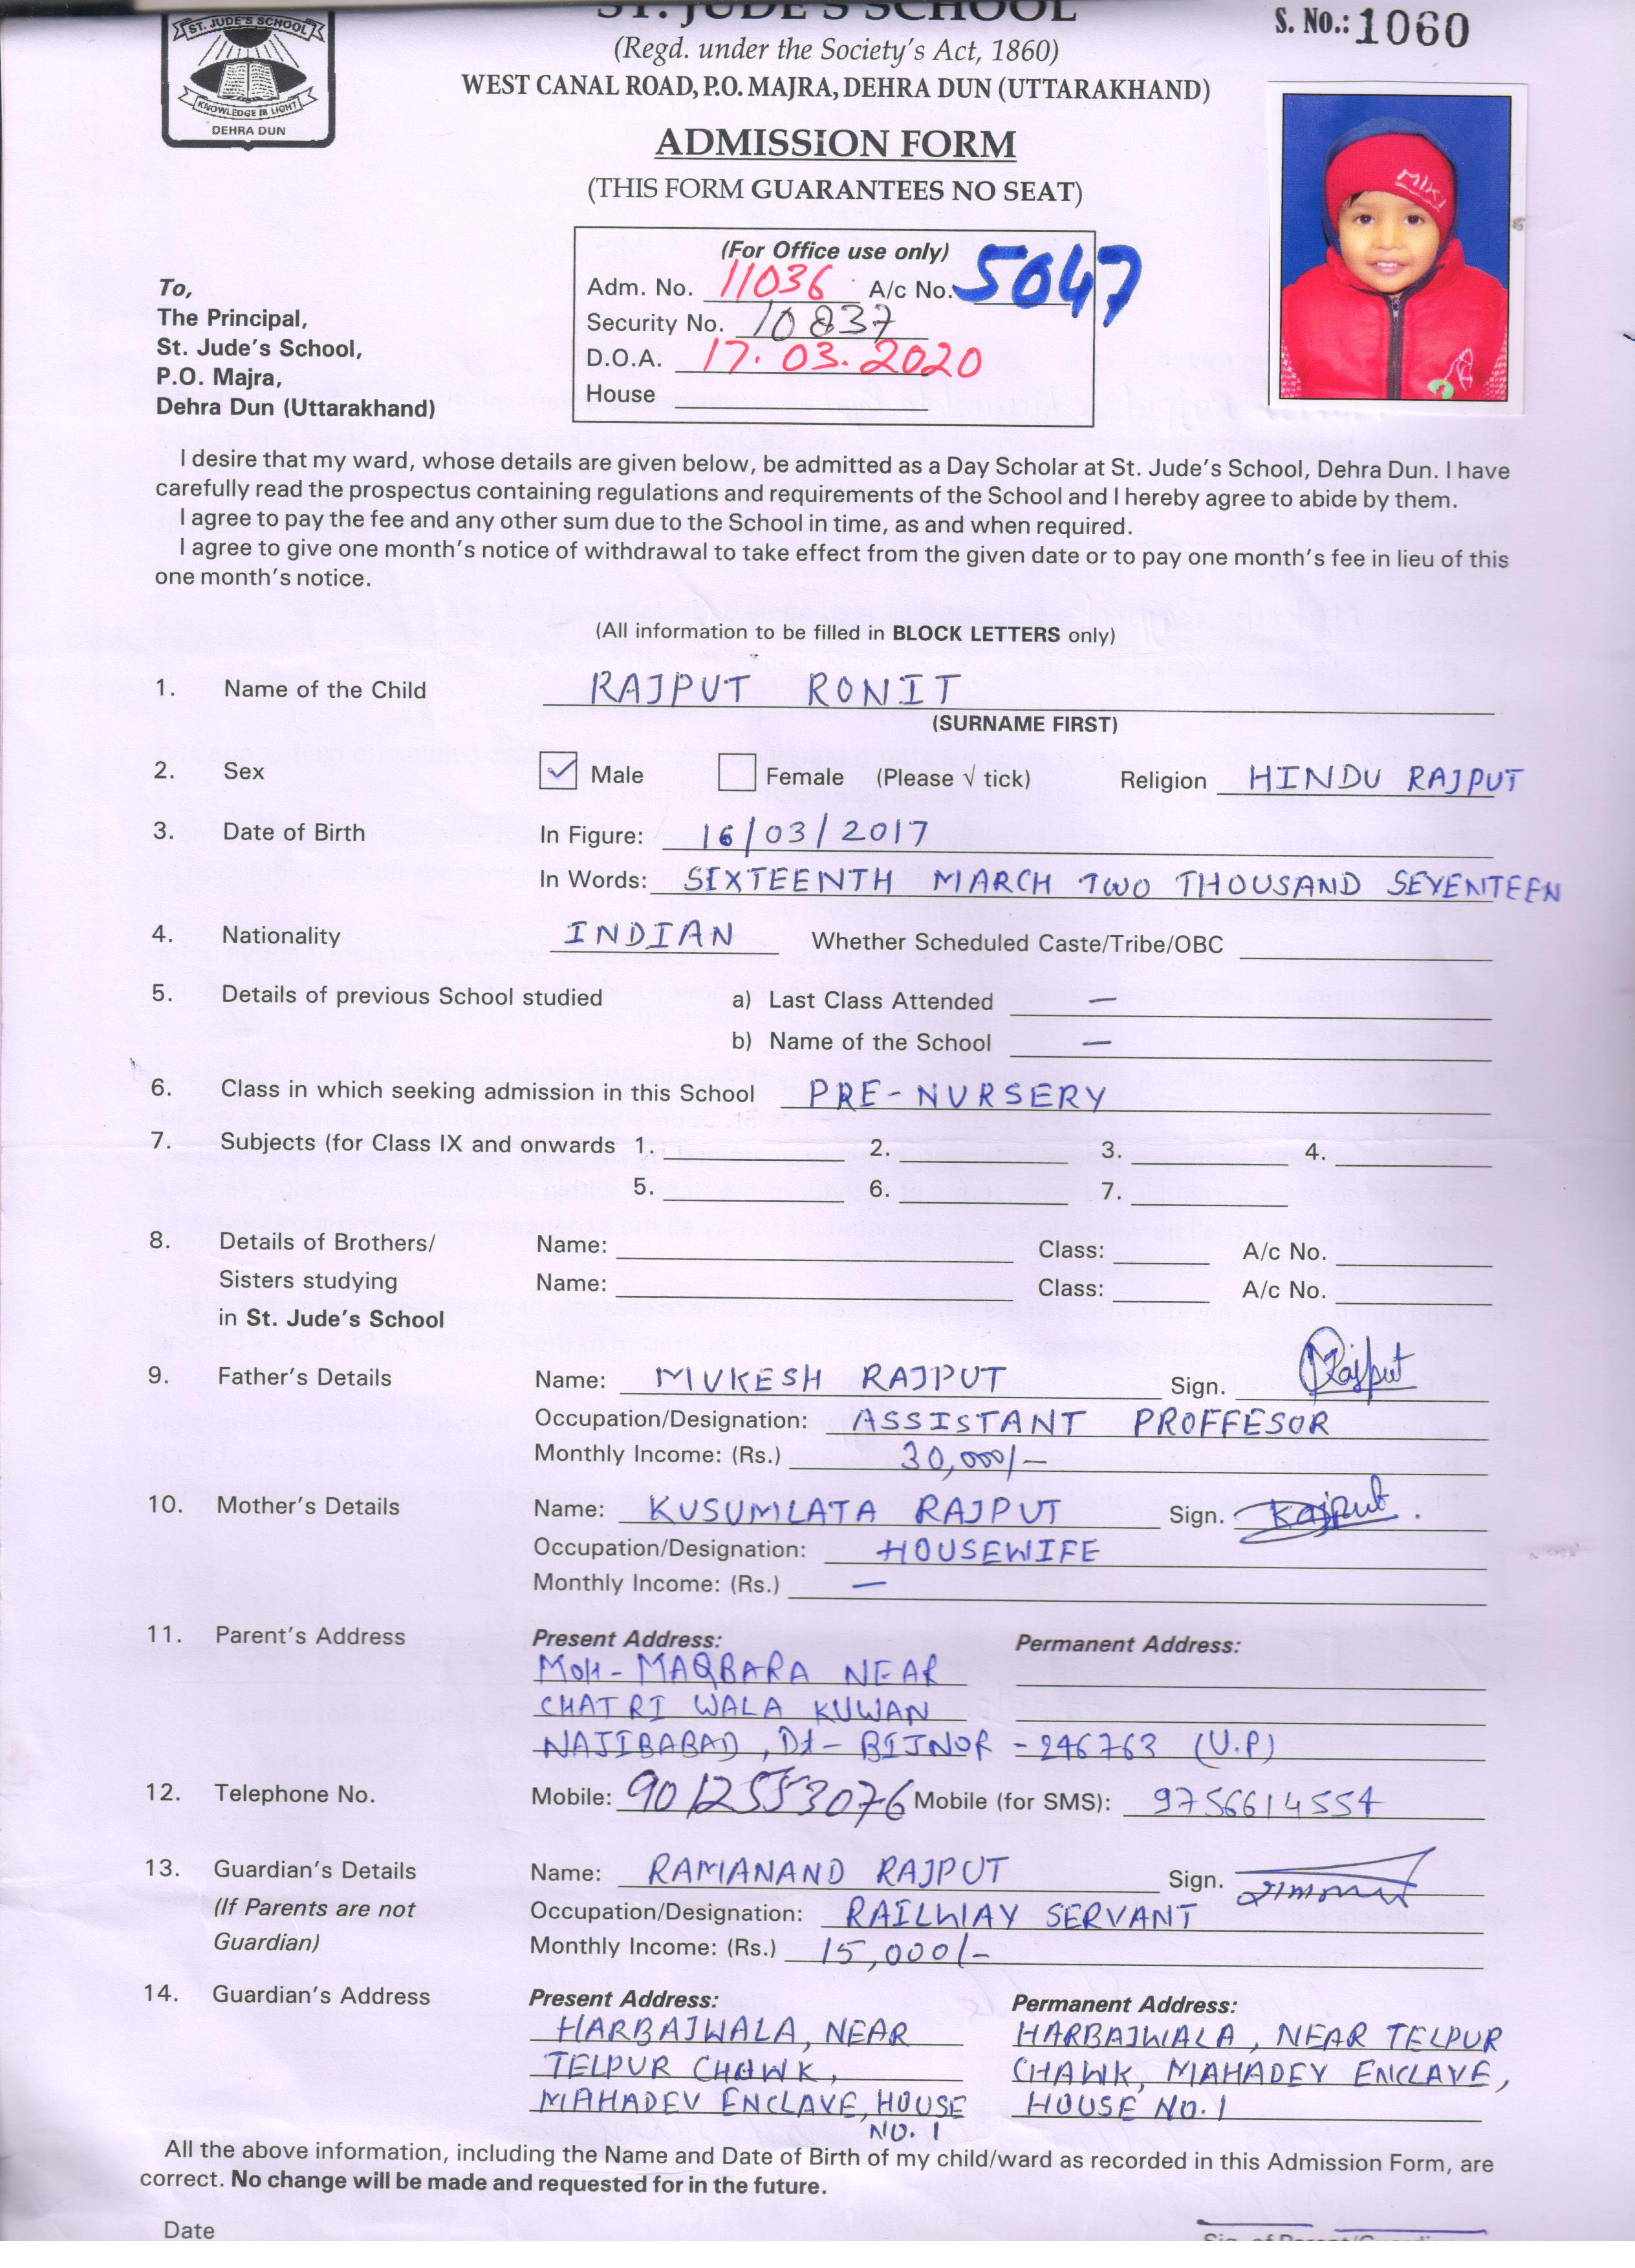 ST. JUDE'S SCHOOL
KNOWLEDGE IS LIGHT
DEHRA DUN
ST. JUDE'S SCHOOL
(Regd. under the Society's Act, 1860)
WEST CANAL ROAD, P.O. MAJRA, DEHRA DUN (UTTARAKHAND)
S. No.: 1060
ADMISSION FORM
(THIS FORM GUARANTEES NO SEAT)
MIKI
(For Office use only)
Adm. No. 11036 A/c No. 5047
Security No. 10837
D.O.A. 17.03.2020
House
To,
The Principal,
St. Jude's School,
P.O. Majra,
Dehra Dun (Uttarakhand)
I desire that my ward, whose details are given below, be admitted as a Day Scholar at St. Jude's School, Dehra Dun. I have
carefully read the prospectus containing regulations and requirements of the School and I hereby agree to abide by them.
I agree to pay the fee and any other sum due to the School in time, as and when required.
I agree to give one month's notice of withdrawal to take effect from the given date or to pay one month's fee in lieu of this
one month's notice.
(All information to be filled in BLOCK LETTERS only)
1. Name of the Child RAJPUT RONIT
(SURNAME FIRST)
2. Sex ✓ Male Female (Please √ tick) Religion HINDU RAJPUT
3. Date of Birth In Figure: 16/03/2017
In Words: SIXTEENTH MARCH TWO THOUSAND SEVENTEEN
4. Nationality INDIAN Whether Scheduled Caste/Tribe/OBC
5. Details of previous School studied a) Last Class Attended —
b) Name of the School —
6. Class in which seeking admission in this School PRE-NURSERY
7. Subjects (for Class IX and onwards 1. 2. 3. 4.
5. 6. 7.
8. Details of Brothers/ Name: Class: A/c No.
Sisters studying Name: Class: A/c No.
in St. Jude's School
9. Father's Details Name: MUKESH RAJPUT Sign. MRajput
Occupation/Designation: ASSISTANT PROFFESOR
Monthly Income: (Rs.) 30,000/-
10. Mother's Details Name: KUSUMLATA RAJPUT Sign. KRajput
Occupation/Designation: HOUSEWIFE
Monthly Income: (Rs.) —
11. Parent's Address Present Address: Permanent Address:
MOH- MAQBARA NEAR
CHATRI WALA KUWAN
NAJIBABAD, Dt- BIJNOR - 246763 (U.P)
12. Telephone No. Mobile: 9012553076 Mobile (for SMS): 9756614554
13. Guardian's Details Name: RAMANAND RAJPUT Sign.
(If Parents are not Occupation/Designation: RAILWAY SERVANT
Guardian) Monthly Income: (Rs.) 15,000/-
14. Guardian's Address Present Address: Permanent Address:
HARBAJWALA, NEAR HARBAJWALA, NEAR TELPUR
TELPUR CHAWK, CHAWK, MAHADEV ENCLAVE,
MAHADEV ENCLAVE, HOUSE HOUSE NO. 1
NO. 1
All the above information, including the Name and Date of Birth of my child/ward as recorded in this Admission Form, are
correct. No change will be made and requested for in the future.
Date